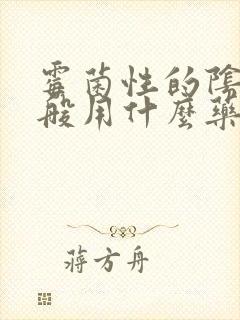 霉菌性的陰
般用什麼藥
蔣方舟